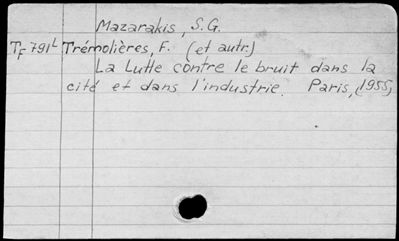 Mazarakis, S.G.
Tf 791L Trémolières, F. (et autr.)
La Lutte contre le bruit dans la
cité et dans l'industrie. Paris, (1955)